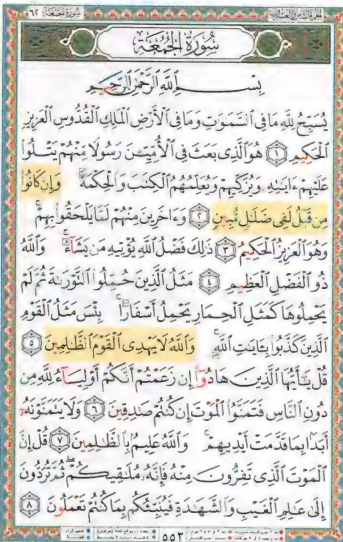 سُورَةُ الجُمُعَةِ
بِسْمِ اللَّهِ الرَّحْمَٰنِ الرَّحِيمِ
يُسَبِّحُ لِلَّهِ مَا فِي السَّمَٰوَٰتِ وَمَا فِي الْأَرْضِ الْمَلِكِ الْقُدُّوسِ الْعَزِيزِ
الْحَكِيمِ ١ هُوَ الَّذِي بَعَثَ فِي الْأُمِّيِّينَ رَسُولًا مِّنْهُمْ يَتْلُوا
عَلَيْهِمْ ءَايَٰتِهِ وَيُزَكِّيهِمْ وَيُعَلِّمُهُمُ الْكِتَٰبَ وَالْحِكْمَةَ وَإِن كَانُوا
مِن قَبْلُ لَفِي ضَلَٰلٍ مُّبِينٍ ٢ وَءَاخَرِينَ مِنْهُمْ لَمَّا يَلْحَقُوا بِهِمْ
وَهُوَ الْعَزِيزُ الْحَكِيمُ ٣ ذَٰلِكَ فَضْلُ اللَّهِ يُؤْتِيهِ مَن يَشَآءُ وَاللَّهُ
ذُو الْفَضْلِ الْعَظِيمِ ٤ مَثَلُ الَّذِينَ حُمِّلُوا التَّوْرَىٰةَ ثُمَّ لَمْ
يَحْمِلُوهَا كَمَثَلِ الْحِمَارِ يَحْمِلُ أَسْفَارًا بِئْسَ مَثَلُ الْقَوْمِ
الَّذِينَ كَذَّبُوا بِـَٔايَٰتِ اللَّهِ وَاللَّهُ لَا يَهْدِي الْقَوْمَ الظَّٰلِمِينَ ٥
قُلْ يَٰٓأَيُّهَا الَّذِينَ هَادُوٓا إِن زَعَمْتُمْ أَنَّكُمْ أَوْلِيَآءُ لِلَّهِ مِن
دُونِ النَّاسِ فَتَمَنَّوُا الْمَوْتَ إِن كُنتُمْ صَٰدِقِينَ ٦ وَلَا يَتَمَنَّوْنَهُ
أَبَدًا بِمَا قَدَّمَتْ أَيْدِيهِمْ وَاللَّهُ عَلِيمٌ بِالظَّٰلِمِينَ ٧ قُلْ إِنَّ
الْمَوْتَ الَّذِي تَفِرُّونَ مِنْهُ فَإِنَّهُ مُلَٰقِيكُمْ ثُمَّ تُرَدُّونَ
إِلَىٰ عَٰلِمِ الْغَيْبِ وَالشَّهَٰدَةِ فَيُنَبِّئُكُم بِمَا كُنتُمْ تَعْمَلُونَ ٨
٥٥٣